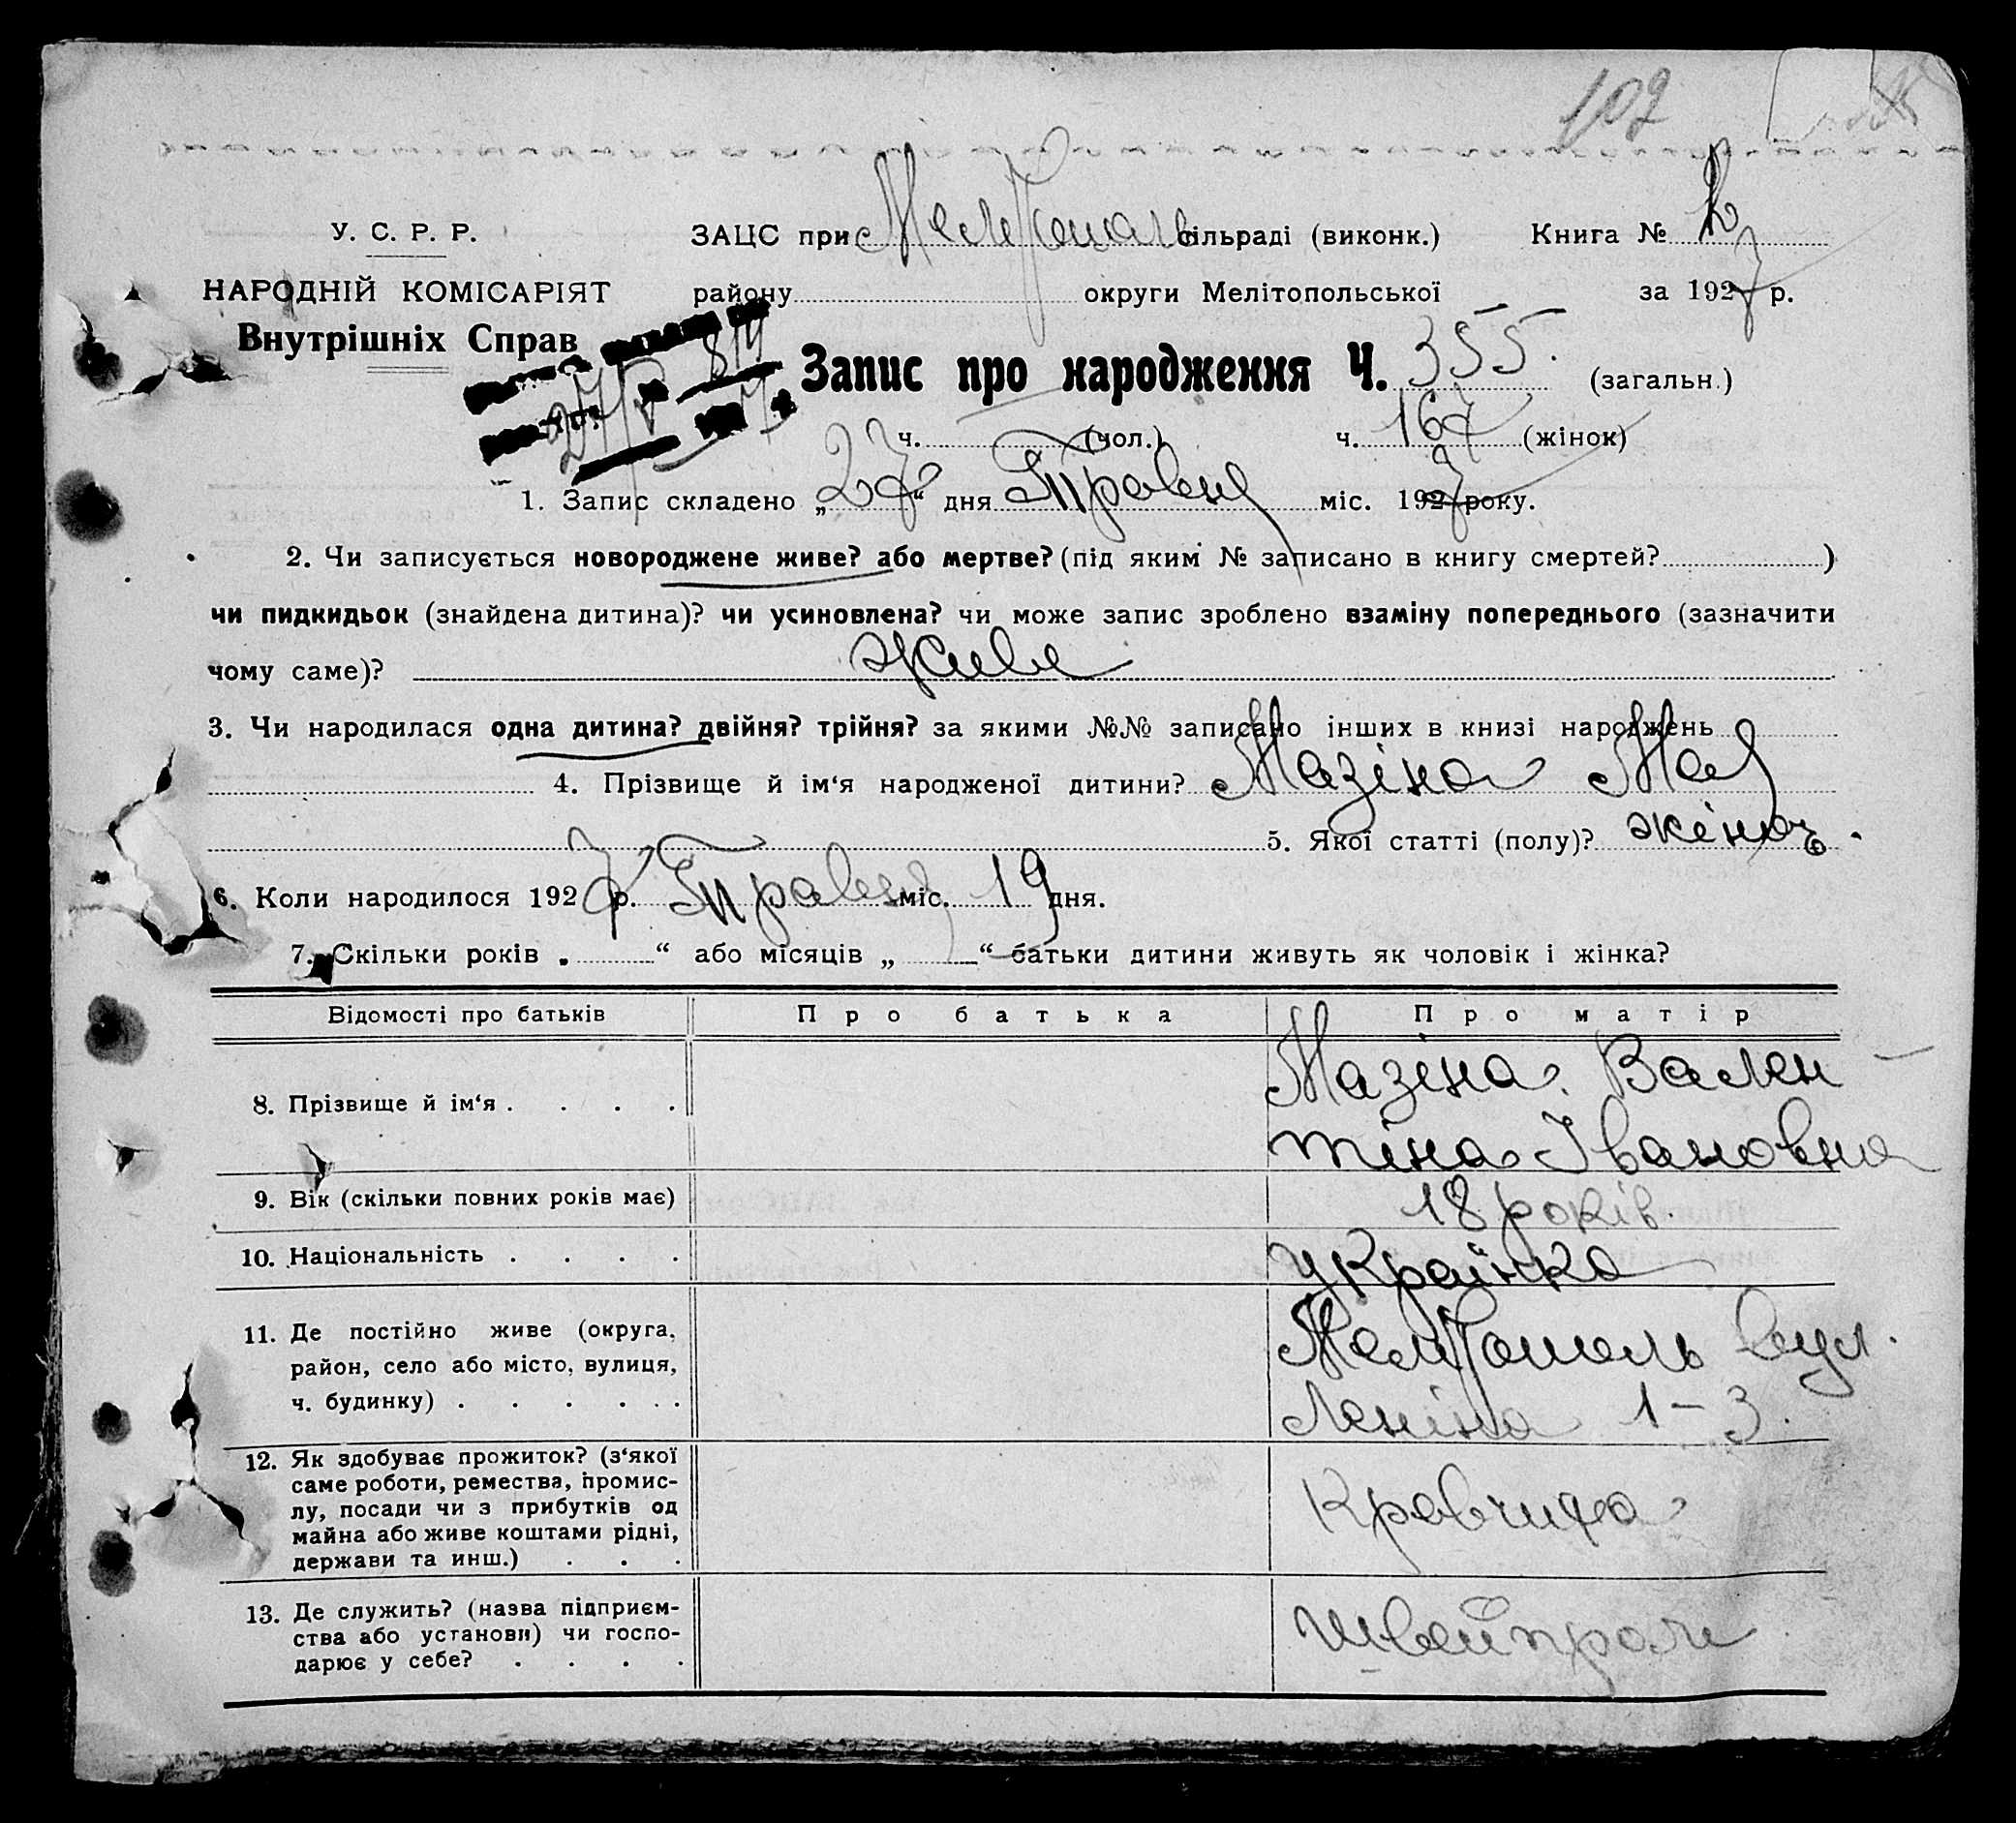 102
У. С. Р. Р.
ЗАЦС при Мелітополь сільраді (виконк.) Книга № 2
НАРОДНІЙ КОМІСАРІЯТ
району округи Мелітопольської за 1927 р.
Внутрішніх Справ
Запис про народження Ч. 355. (загальн.)
ч. (чол.) ч. 167 (жінок)
1. Запис складено „27“ дня Травня міс. 1927 року.
2. Чи записується новороджене живе? або мертве? (під яким № записано в книгу смертей? )
чи пидкидьок (знайдена дитина)? чи усиновлена? чи може запис зроблено взаміну попереднього (зазначити
чому саме)? живе
3. Чи народилася одна дитина? двійня? трійня? за якими №№ записано інших в книзі народжень
4. Прізвище й ім‘я народженої дитини? Мазіна Мая
5. Якої статті (полу)? жіноч.
6. Коли народилося 1927 р. Травня міс. 19 дня.
7. Скільки років „ “ або місяців „ “ батьки дитини живуть як чоловік і жінка?
Відомості про батьків Про батька Про матір
8. Прізвище й ім‘я . . . . Мазіна Вален
тіна Івановна
9. Вік (скільки повних років має) 18 років.
10. Національність . . . . Українка
11. Де постійно живе (округа, Мелітополь вул.
район, село або місто, вулиця,
ч. будинку) . . . . . . Леніна 1-3.
12. Як здобуває прожиток? (з‘якої
саме роботи, ремества, промис-
лу, посади чи з прибутків од Кравчиха
майна або живе коштами рідні,
держави та инш.) . . .
13. Де служить? (назва підприєм-
ства або установи) чи госпо- Швейпром
дарює у себе? . . . .